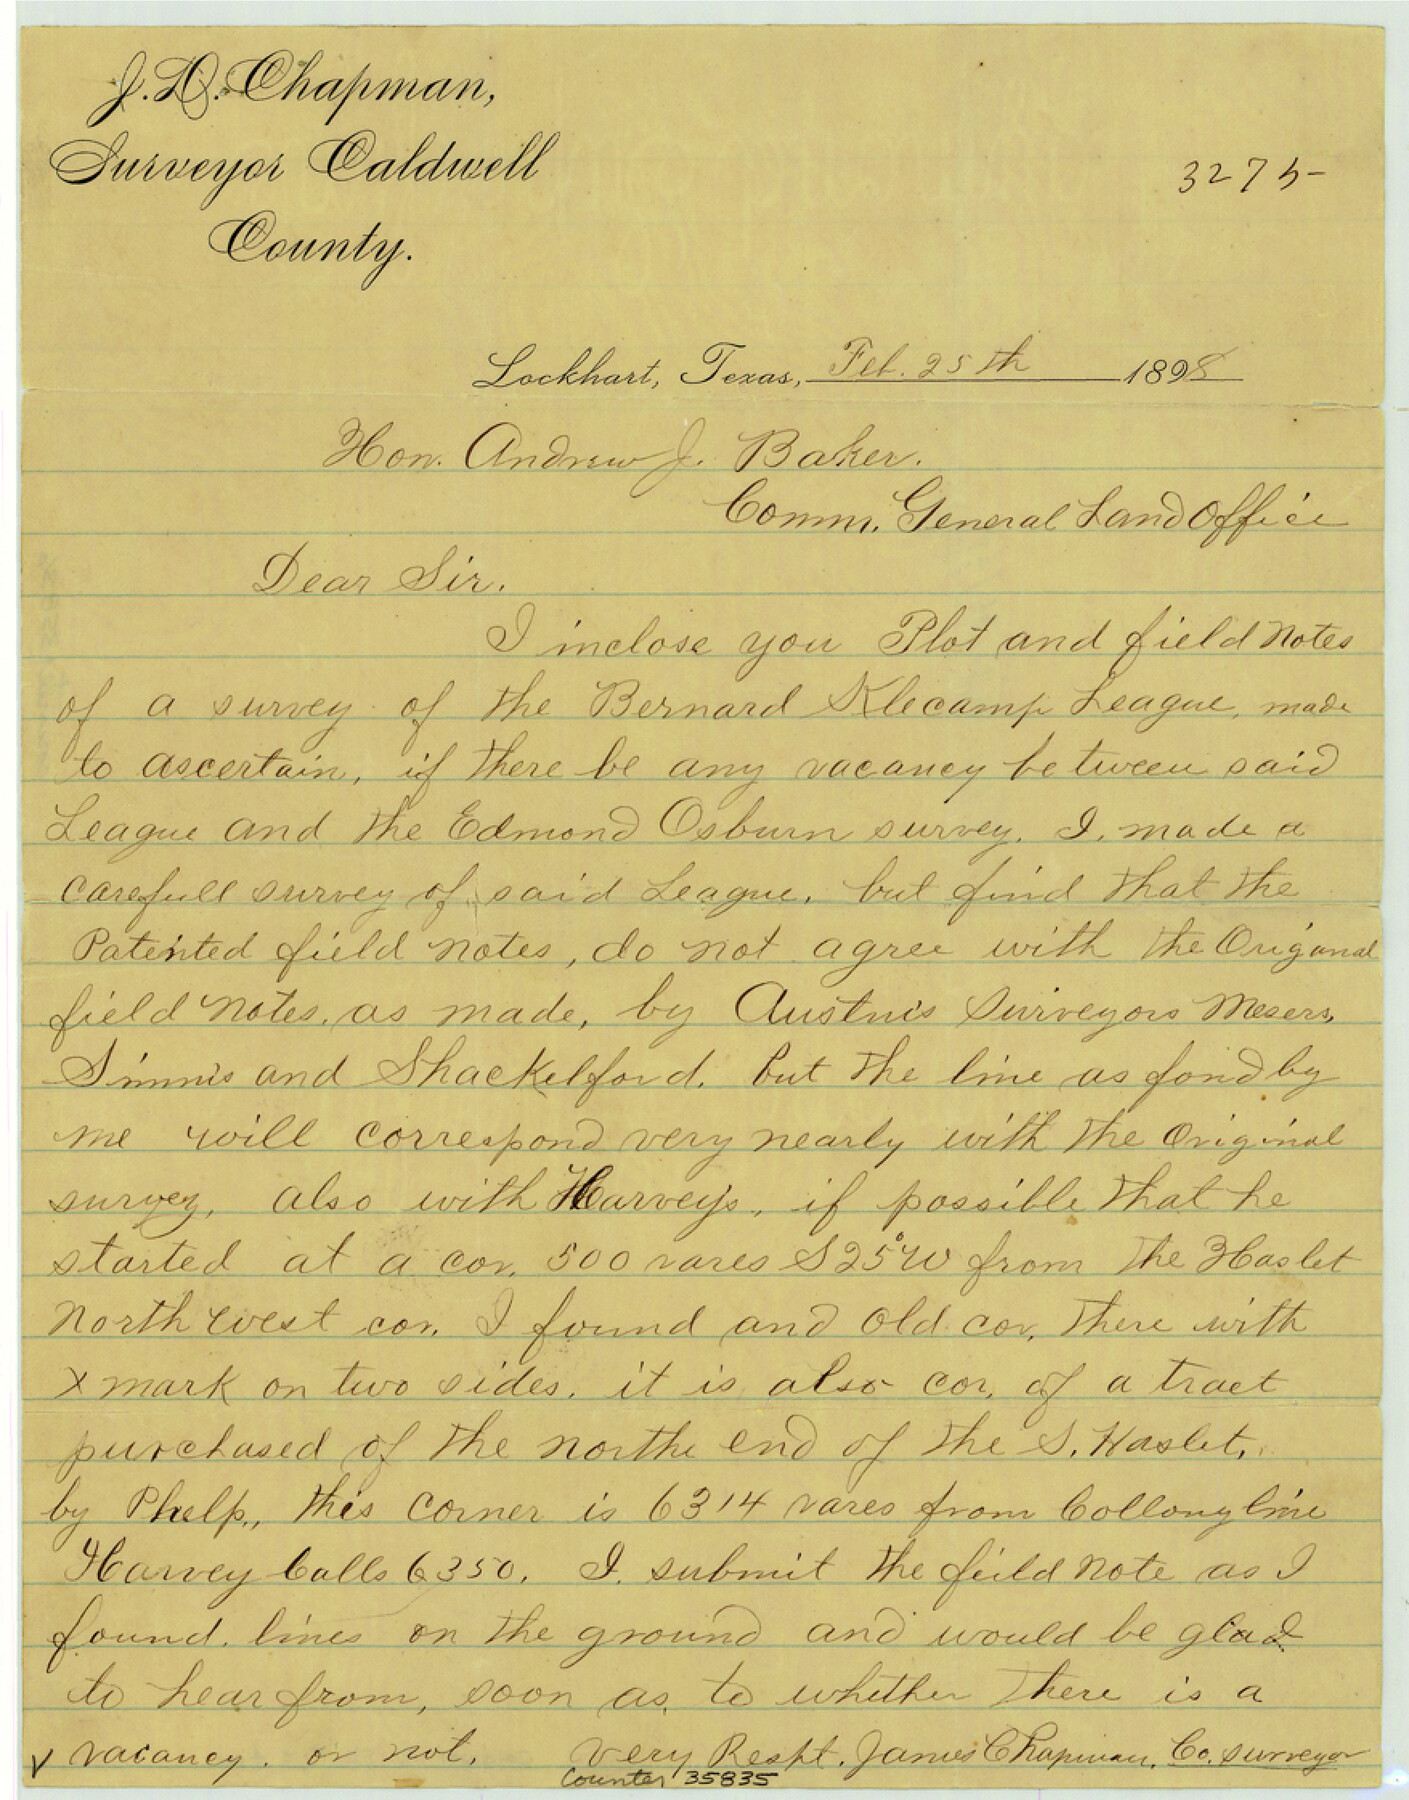 J. D. Chapman,
Surveyor Caldwell
County.
3275-
Lockhart, Texas, Feb. 25th 1898
Hon. Andrew J. Baker.
Comm. General Land Office
Dear Sir.
I inclose you Plot and field notes
of a survey of the Bernard Klecamp League, made
to ascertain, if there be any vacancy between said
League and the Edmond Osburn survey. I, made a
carefull survey of said League, but find that the
Patented field notes, do not agree with the Origanal
field notes, as made, by Austin's Surveyors Messrs,
Simms and Shackelford. but the line as fond by
me will correspond very nearly with the Original
survey, also with Harveys, if possible that he
started at a cor. 500 vares S 25° W from the Haslet
North west cor. I found and old cor, there with
X mark on two sides. it is also cor, of a tract
purchased of the northe end of the S. Haslet,
by Phelp,, this corner is 6314 vares from Collony line
Harvey Calls 6350. I. submit the feild note as I
found. lines on the ground and would be glad
to hear from, soon as, to whether there is a
v vacancy. or not. Very Respt. James Chapman, Co. surveyor
Counter 35835